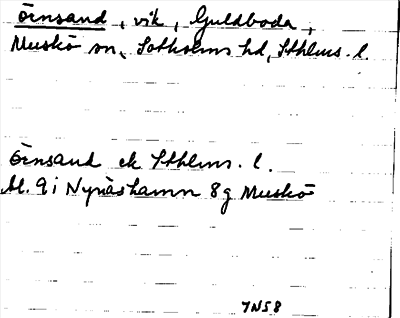 Örnsand, vik, Guldboda,
Muskö sn, Sotholms hd, Sthlms. l.
Örnsand ek Sthlms. l.
bl. 9 i Nynäshamn 8g Muskö
7N58